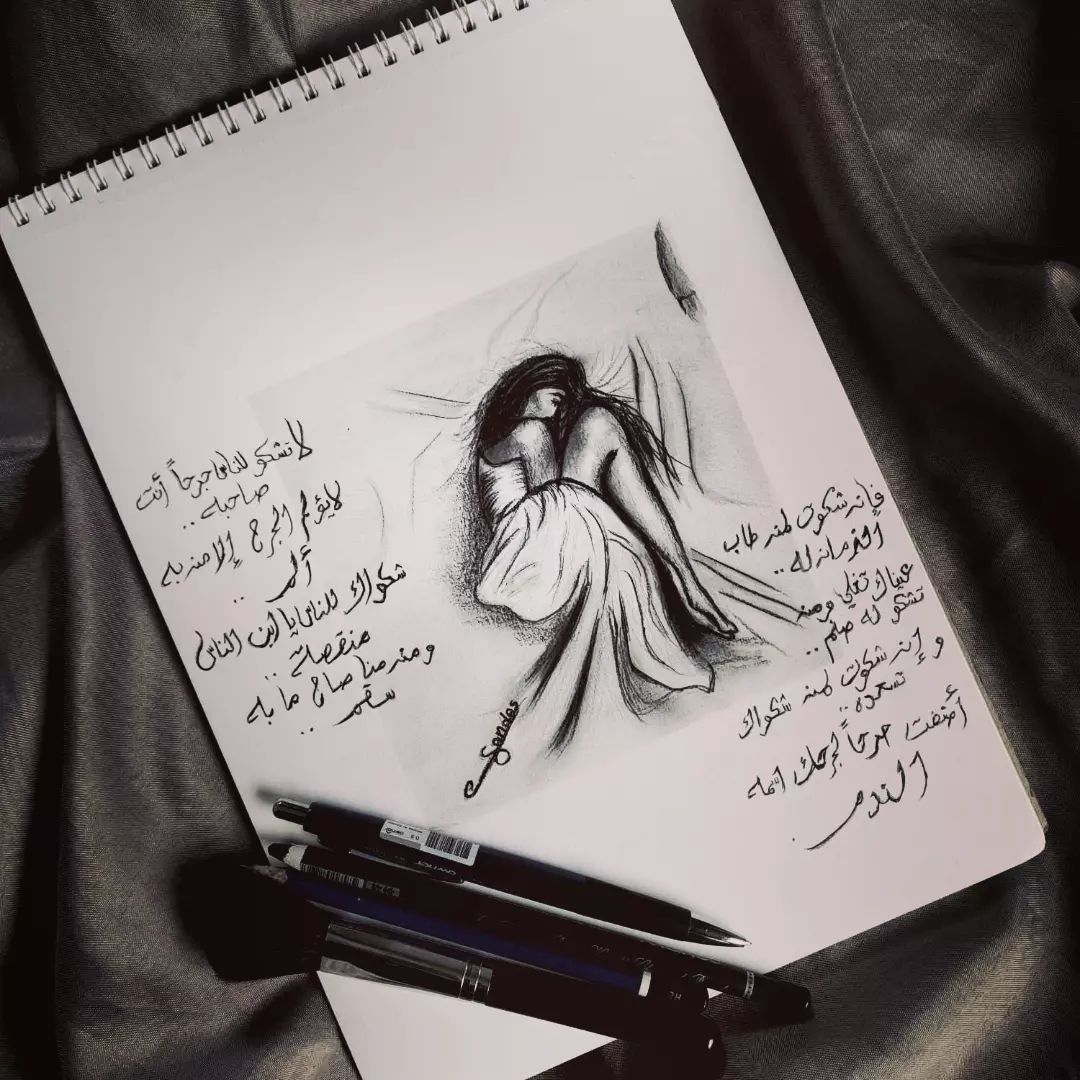 لا تشكو للناس جرحاً أنت
صاحبه ..
لا يؤلم الجرح إلا من به
ألم ..
شكواك للناس يا ابن الناس
منقصة ..
ومن من الناس صاح ما به
سقم ..
فإن شكوت لمن طاب
الزمان له ..
عيناك تغلي ومن
تشكو له صنم ..
وإن شكوت لمن شكواك
تسعده ..
أضفت جرحاً لجرحك اسمه
الندم .
Sondos